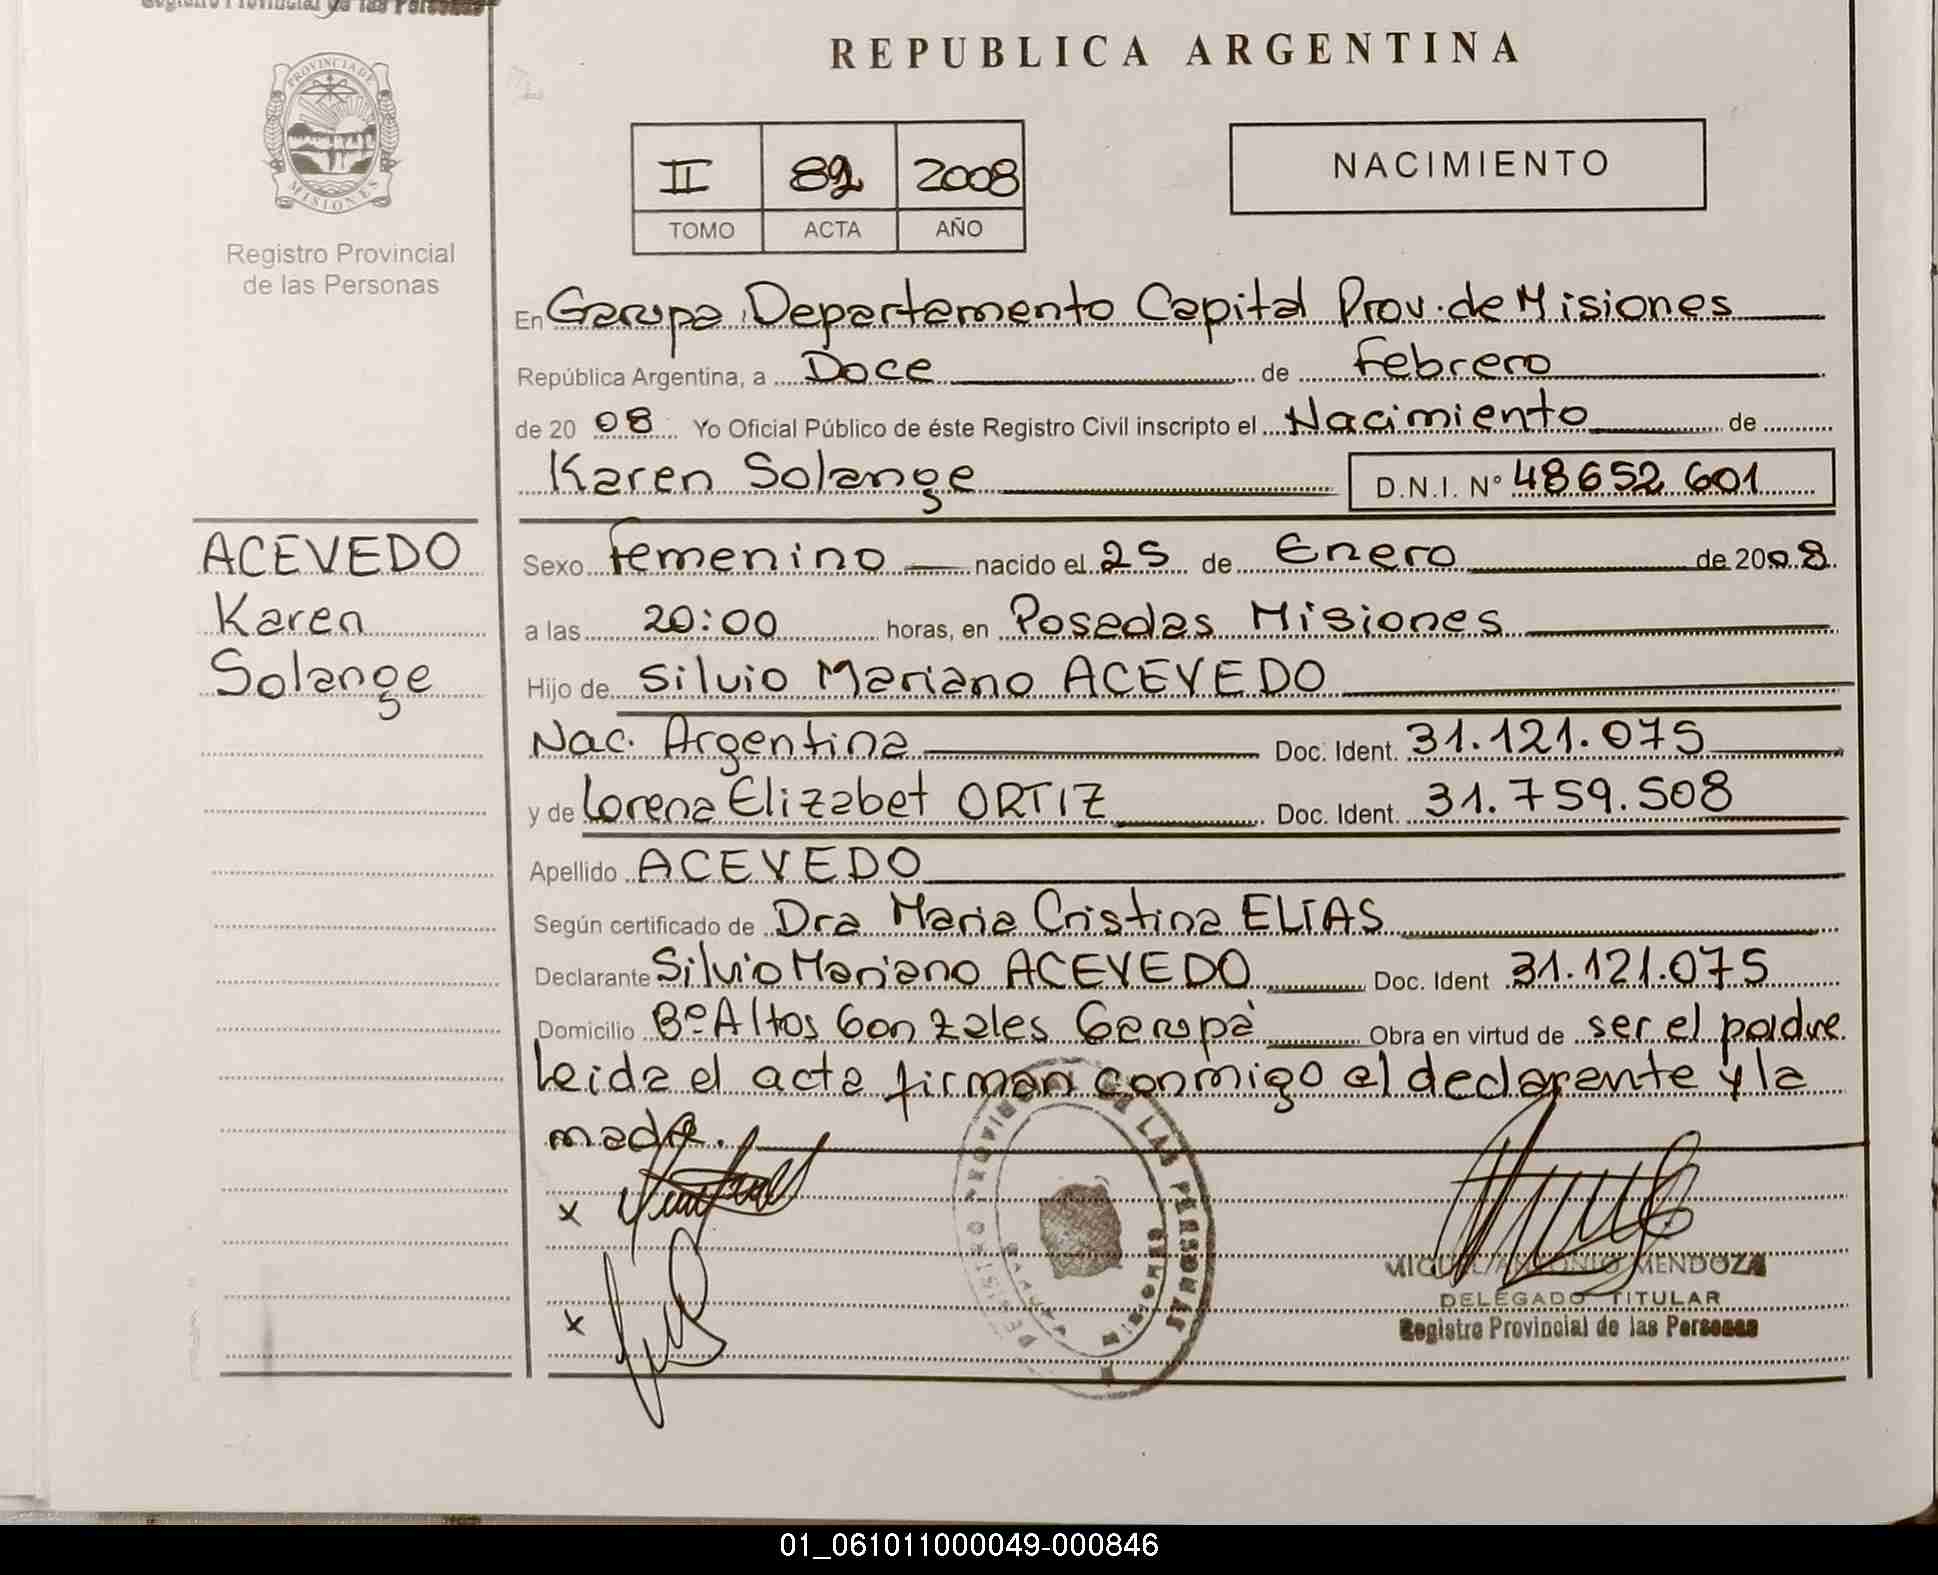 Registro Provincial de las Personas
PROVINCIA DE
MISIONES
Registro Provincial
de las Personas
REPUBLICA ARGENTINA
II 82 2008
TOMO ACTA AÑO
NACIMIENTO
En Garupa, Departamento Capital Prov. de Misiones
República Argentina, a Doce de Febrero
de 2008 Yo Oficial Público de éste Registro Civil inscripto el Nacimiento de
Karen Solange D.N.I. Nº 48652601
ACEVEDO
Karen
Solange
Sexo Femenino nacido el 25 de Enero de 2008
a las 20:00 horas, en Posadas Misiones
Hijo de Silvio Mariano ACEVEDO
Nac. Argentina Doc. Ident. 31.121.075
y de Lorena Elizabet ORTIZ Doc. Ident. 31.759.508
Apellido ACEVEDO
Según certificado de Dra Maria Cristina ELIAS
Declarante Silvio Mariano ACEVEDO Doc. Ident 31.121.075
Domicilio Bº Altos Gonzales Garupà Obra en virtud de ser el padre
Leida el acta firman conmigo el declarante y la
madre.
x
x
REGISTRO PROVINC DE LAS PERSONAS
MISIONES
MIGUEL ANTONIO MENDOZA
DELEGADO TITULAR
Registro Provincial de las Personas
01_061011000049-000846